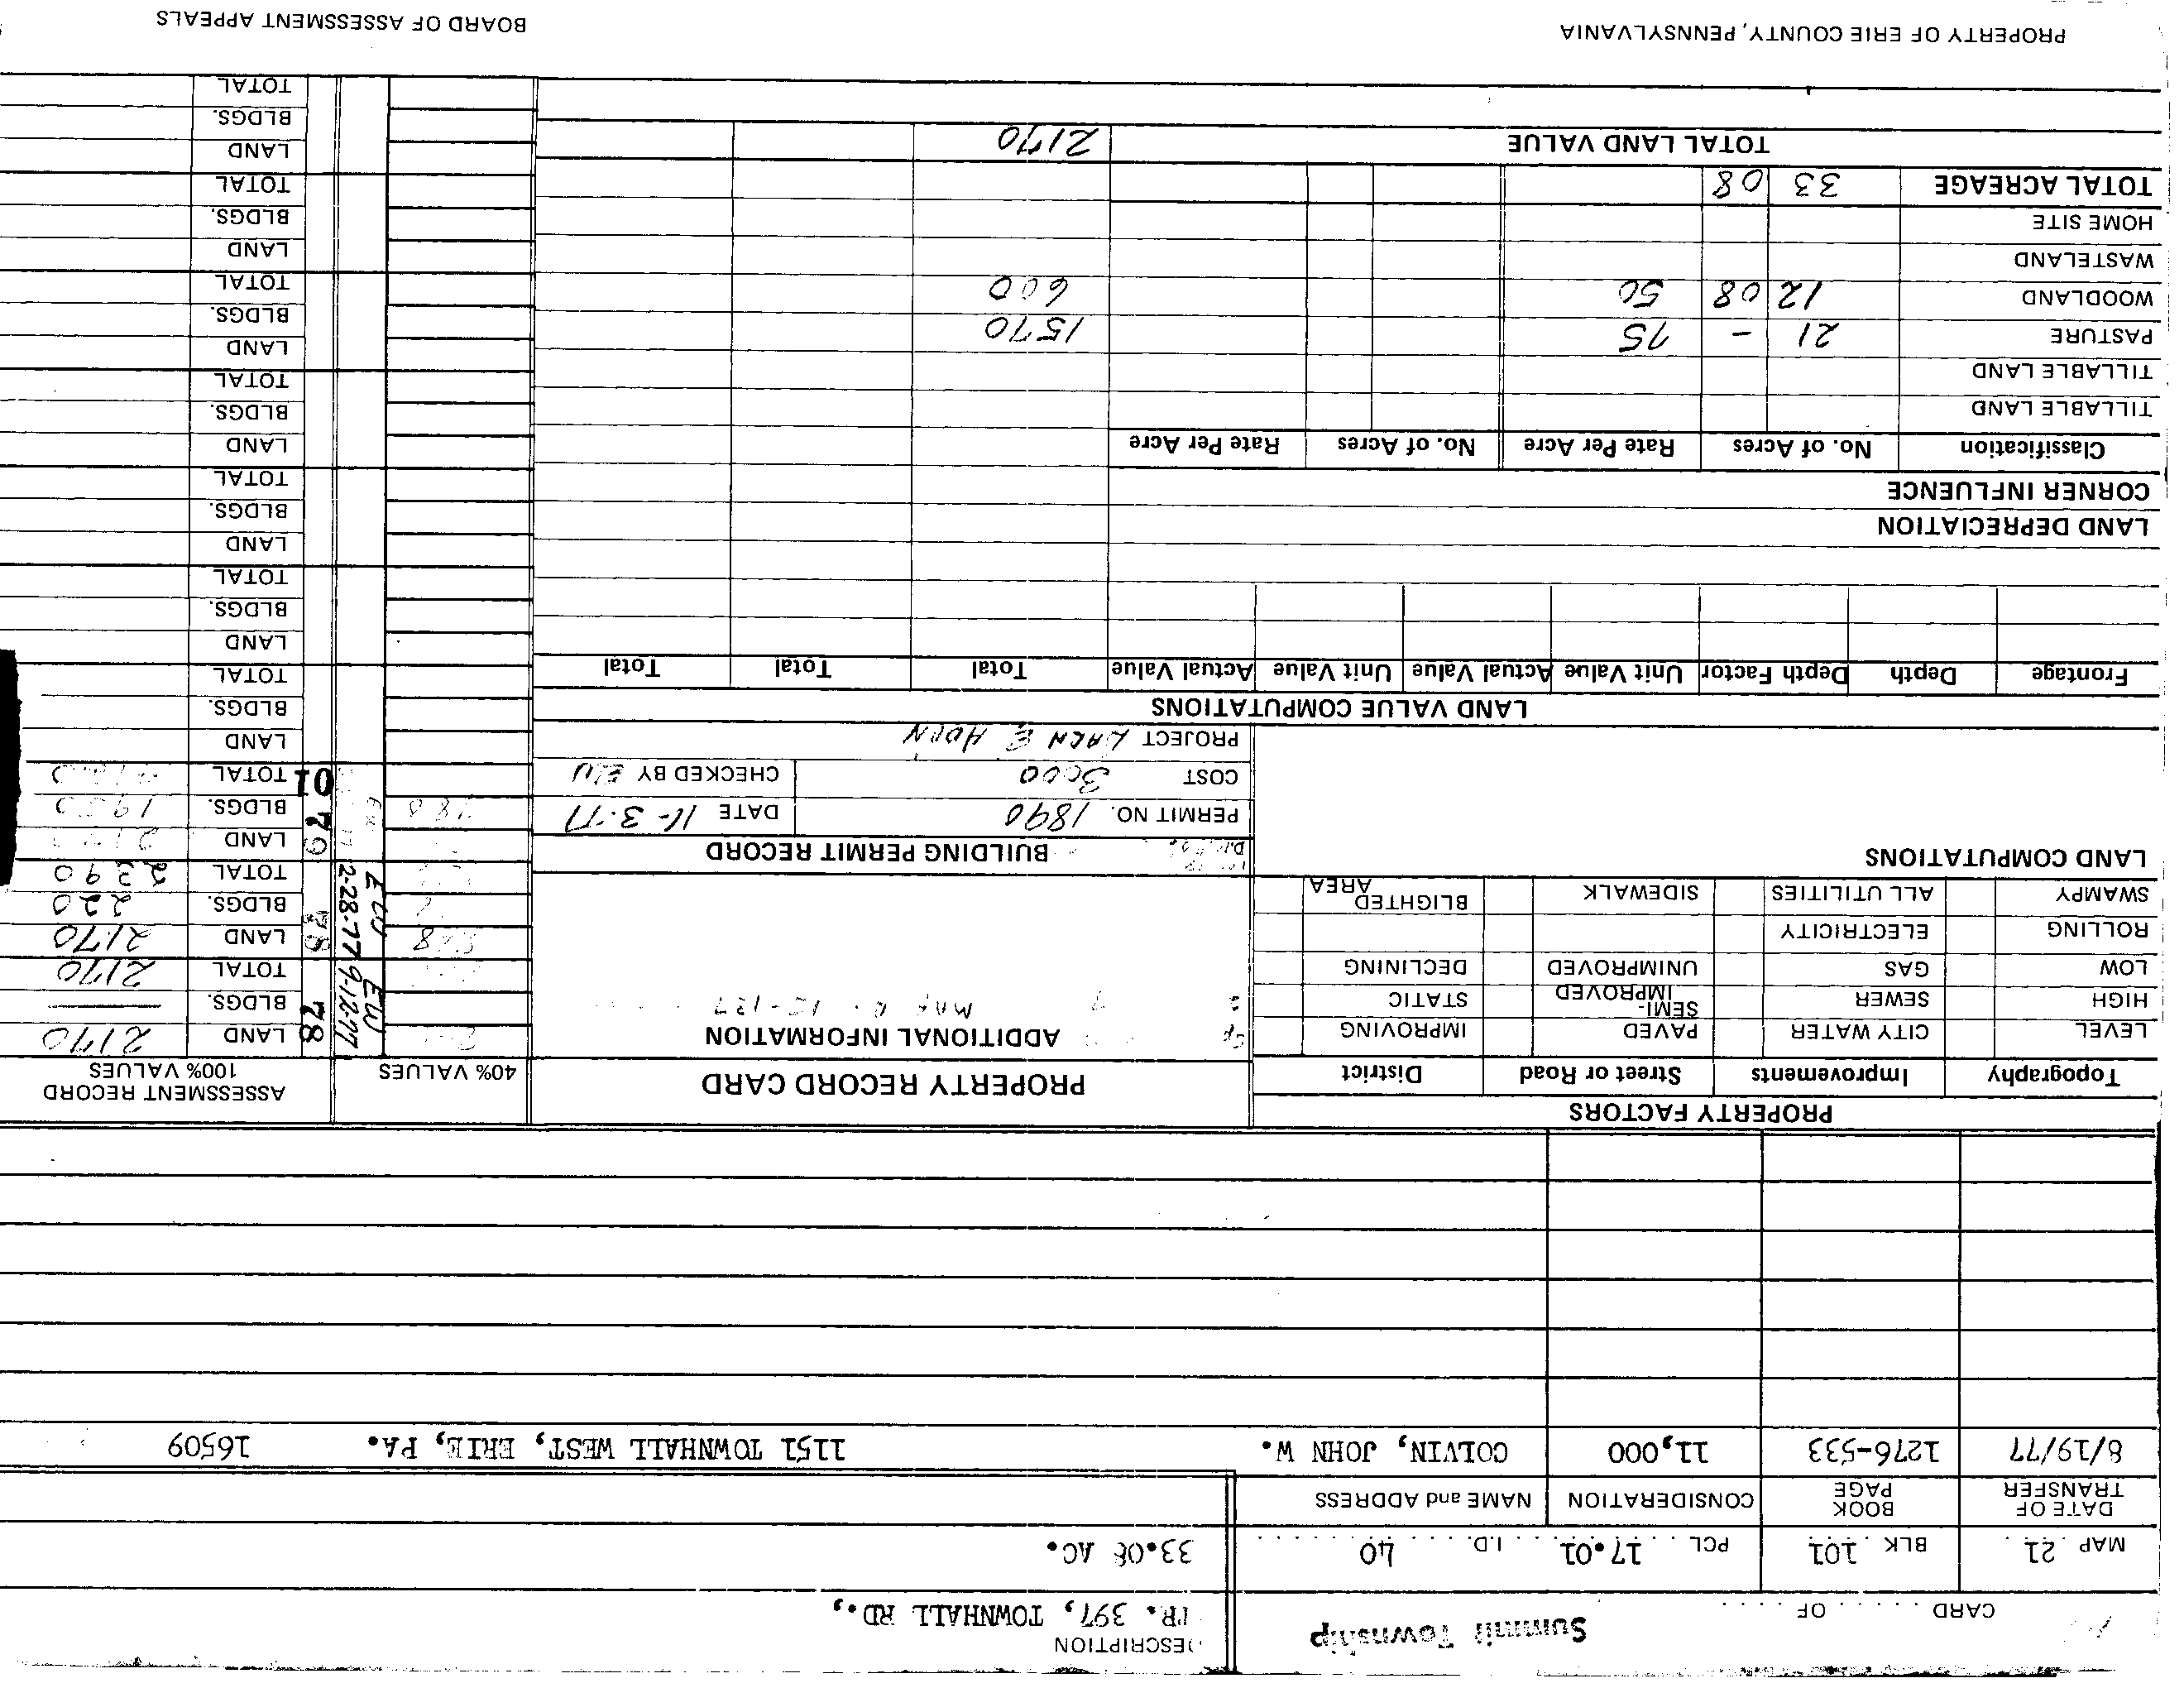 Summit Township
DESCRIPTION
CARD . . . . . OF . . . . .
TR. 397, TOWNHALL RD.,
MAP 21 BLK 101 PCL 17.01 I.D. 40
33.08 AC.
DATE OF TRANSFER BOOK PAGE CONSIDERATION NAME and ADDRESS
8/19/77 1276-533 11,000 COLVIN, JOHN W. 1151 TOWNHALL WEST, ERIE, PA. 16509
PROPERTY FACTORS
Topography Improvements Street or Road District
LEVEL CITY WATER PAVED IMPROVING
HIGH SEWER SEMI-IMPROVED STATIC
LOW GAS UNIMPROVED DECLINING
ROLLING ELECTRICITY
SWAMPY ALL UTILITIES SIDEWALK BLIGHTED AREA
LAND COMPUTATIONS
PROPERTY RECORD CARD
ADDITIONAL INFORMATION
BUILDING PERMIT RECORD
PERMIT NO. 1890 DATE 11-3-77
COST 3000 CHECKED BY EW
PROJECT
40% VALUES
ASSESSMENT RECORD
100% VALUES
78 LAND 2170
9-12-77 EW
BLDGS. —
TOTAL 2170
78 LAND 2170
2-28-77 EW
BLDGS. 220
TOTAL 2390
79 LAND
BLDGS.
01 TOTAL
LAND
BLDGS.
TOTAL
LAND
BLDGS.
TOTAL
LAND
BLDGS.
TOTAL
LAND
BLDGS.
TOTAL
LAND
BLDGS.
TOTAL
LAND
BLDGS.
TOTAL
LAND
BLDGS.
TOTAL
LAND VALUE COMPUTATIONS
Frontage Depth Depth Factor Unit Value Actual Value Unit Value Actual Value Total Total Total
LAND DEPRECIATION
CORNER INFLUENCE
Classification No. of Acres Rate Per Acre No. of Acres Rate Per Acre
TILLABLE LAND
TILLABLE LAND
PASTURE 21 - 75 1570
WOODLAND 12 08 50 600
WASTELAND
HOME SITE
TOTAL ACREAGE 33 08
TOTAL LAND VALUE 2170
PROPERTY OF ERIE COUNTY, PENNSYLVANIA
BOARD OF ASSESSMENT APPEALS